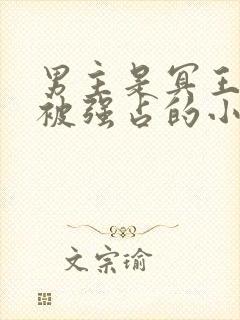 男主是冥王
被强占的小
文宗瑜